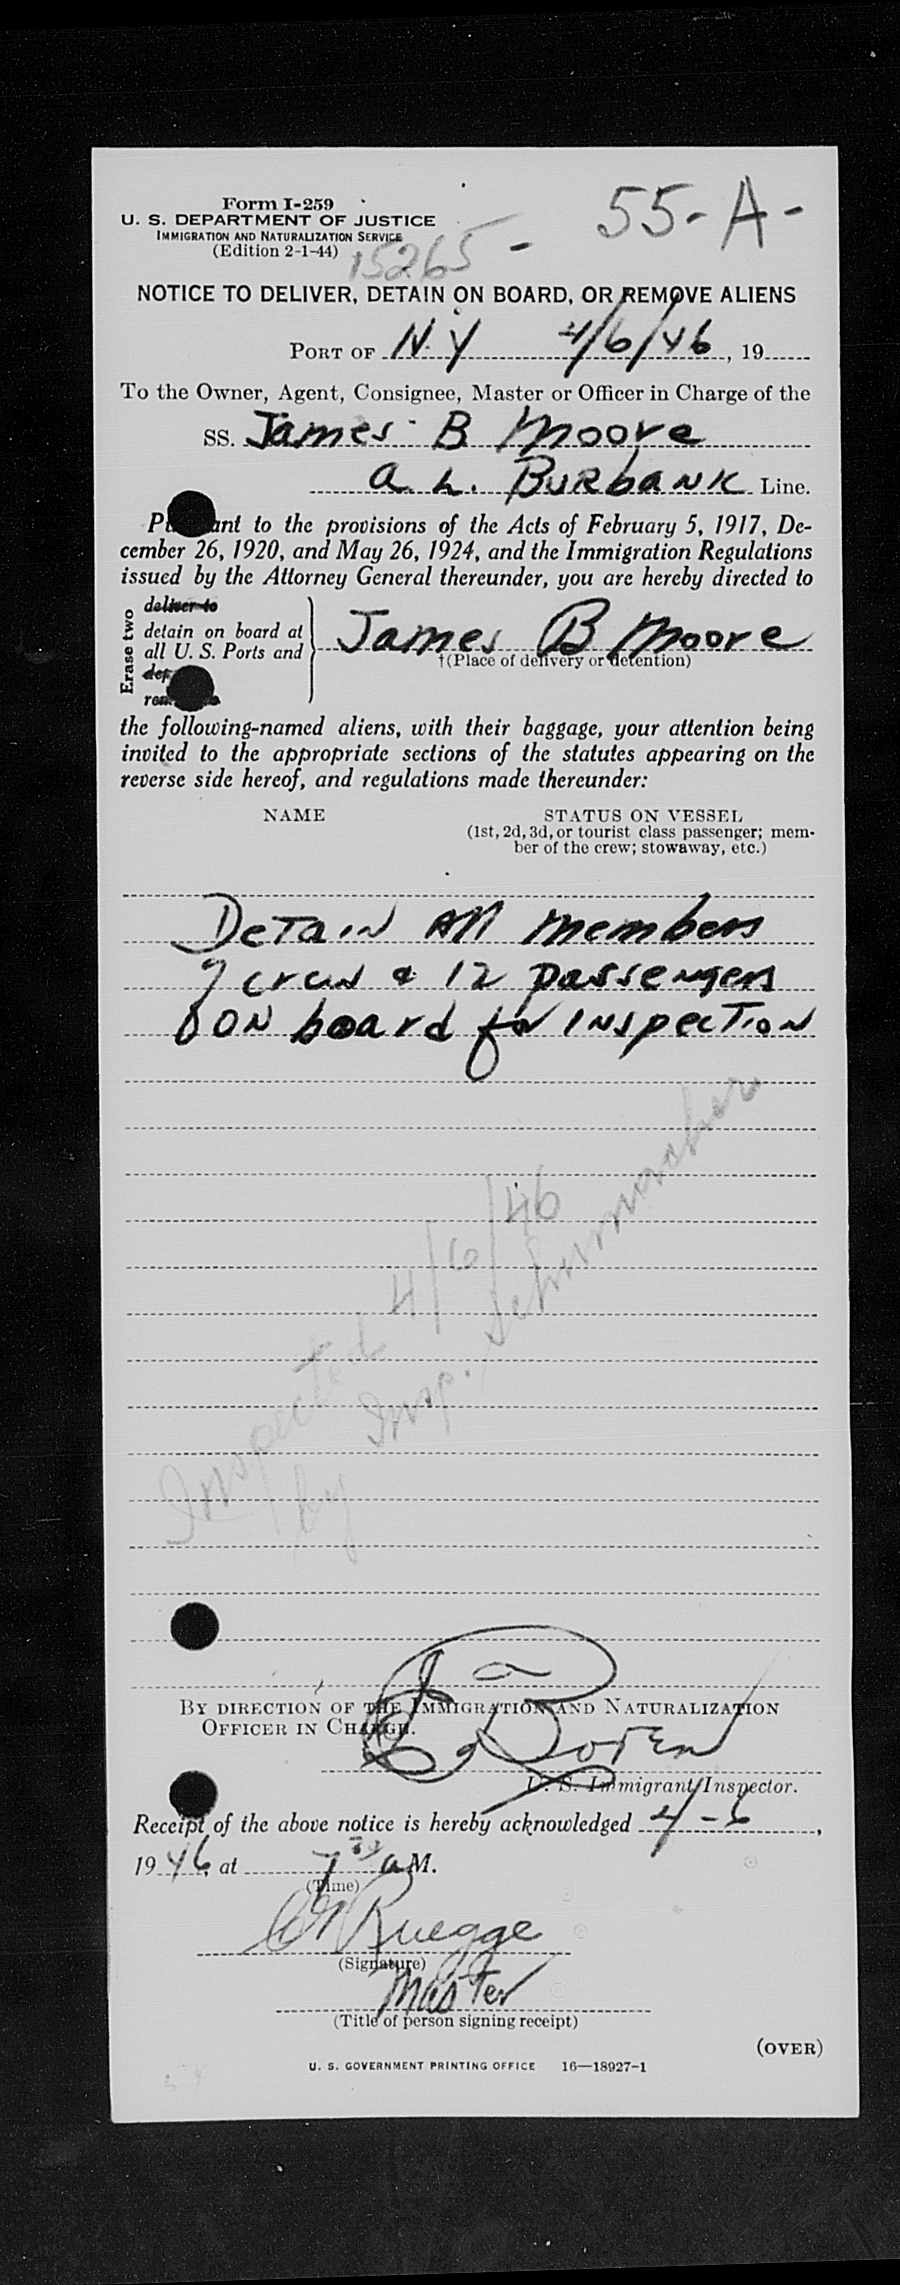 Form I-259
55-A-
U. S. DEPARTMENT OF JUSTICE
IMMIGRATION AND NATURALIZATION SERVICE
(Edition 2-1-44)
15265-
NOTICE TO DELIVER, DETAIN ON BOARD, OR REMOVE ALIENS
PORT OF N.Y 4/6/46, 19
To the Owner, Agent, Consignee, Master or Officer in Charge of the
SS. James B Moore
A. L. Burbank Line.
Pursuant to the provisions of the Acts of February 5, 1917, De-
cember 26, 1920, and May 26, 1924, and the Immigration Regulations
issued by the Attorney General thereunder, you are hereby directed to
Erase two
deliver to
detain on board at
all U. S. Ports and
James B Moore
†(Place of delivery or detention)
the following-named aliens, with their baggage, your attention being
invited to the appropriate sections of the statutes appearing on the
reverse side hereof, and regulations made thereunder:
NAME STATUS ON VESSEL
(1st, 2d, 3d, or tourist class passenger; mem-
ber of the crew; stowaway, etc.)
Detain All members
of crew & 12 passengers
ON board for INspection
Inspected 4/6/46
by Insp. Schumacher
BY DIRECTION OF THE IMMIGRATION AND NATURALIZATION
OFFICER IN CHARGE.
U. S. Immigrant Inspector.
Receipt of the above notice is hereby acknowledged 4-6,
1946, at 7 30 a M.
(Time)
Ruegge
(Signature)
Master
(Title of person signing receipt)
(OVER)
U. S. GOVERNMENT PRINTING OFFICE 16—18927-1